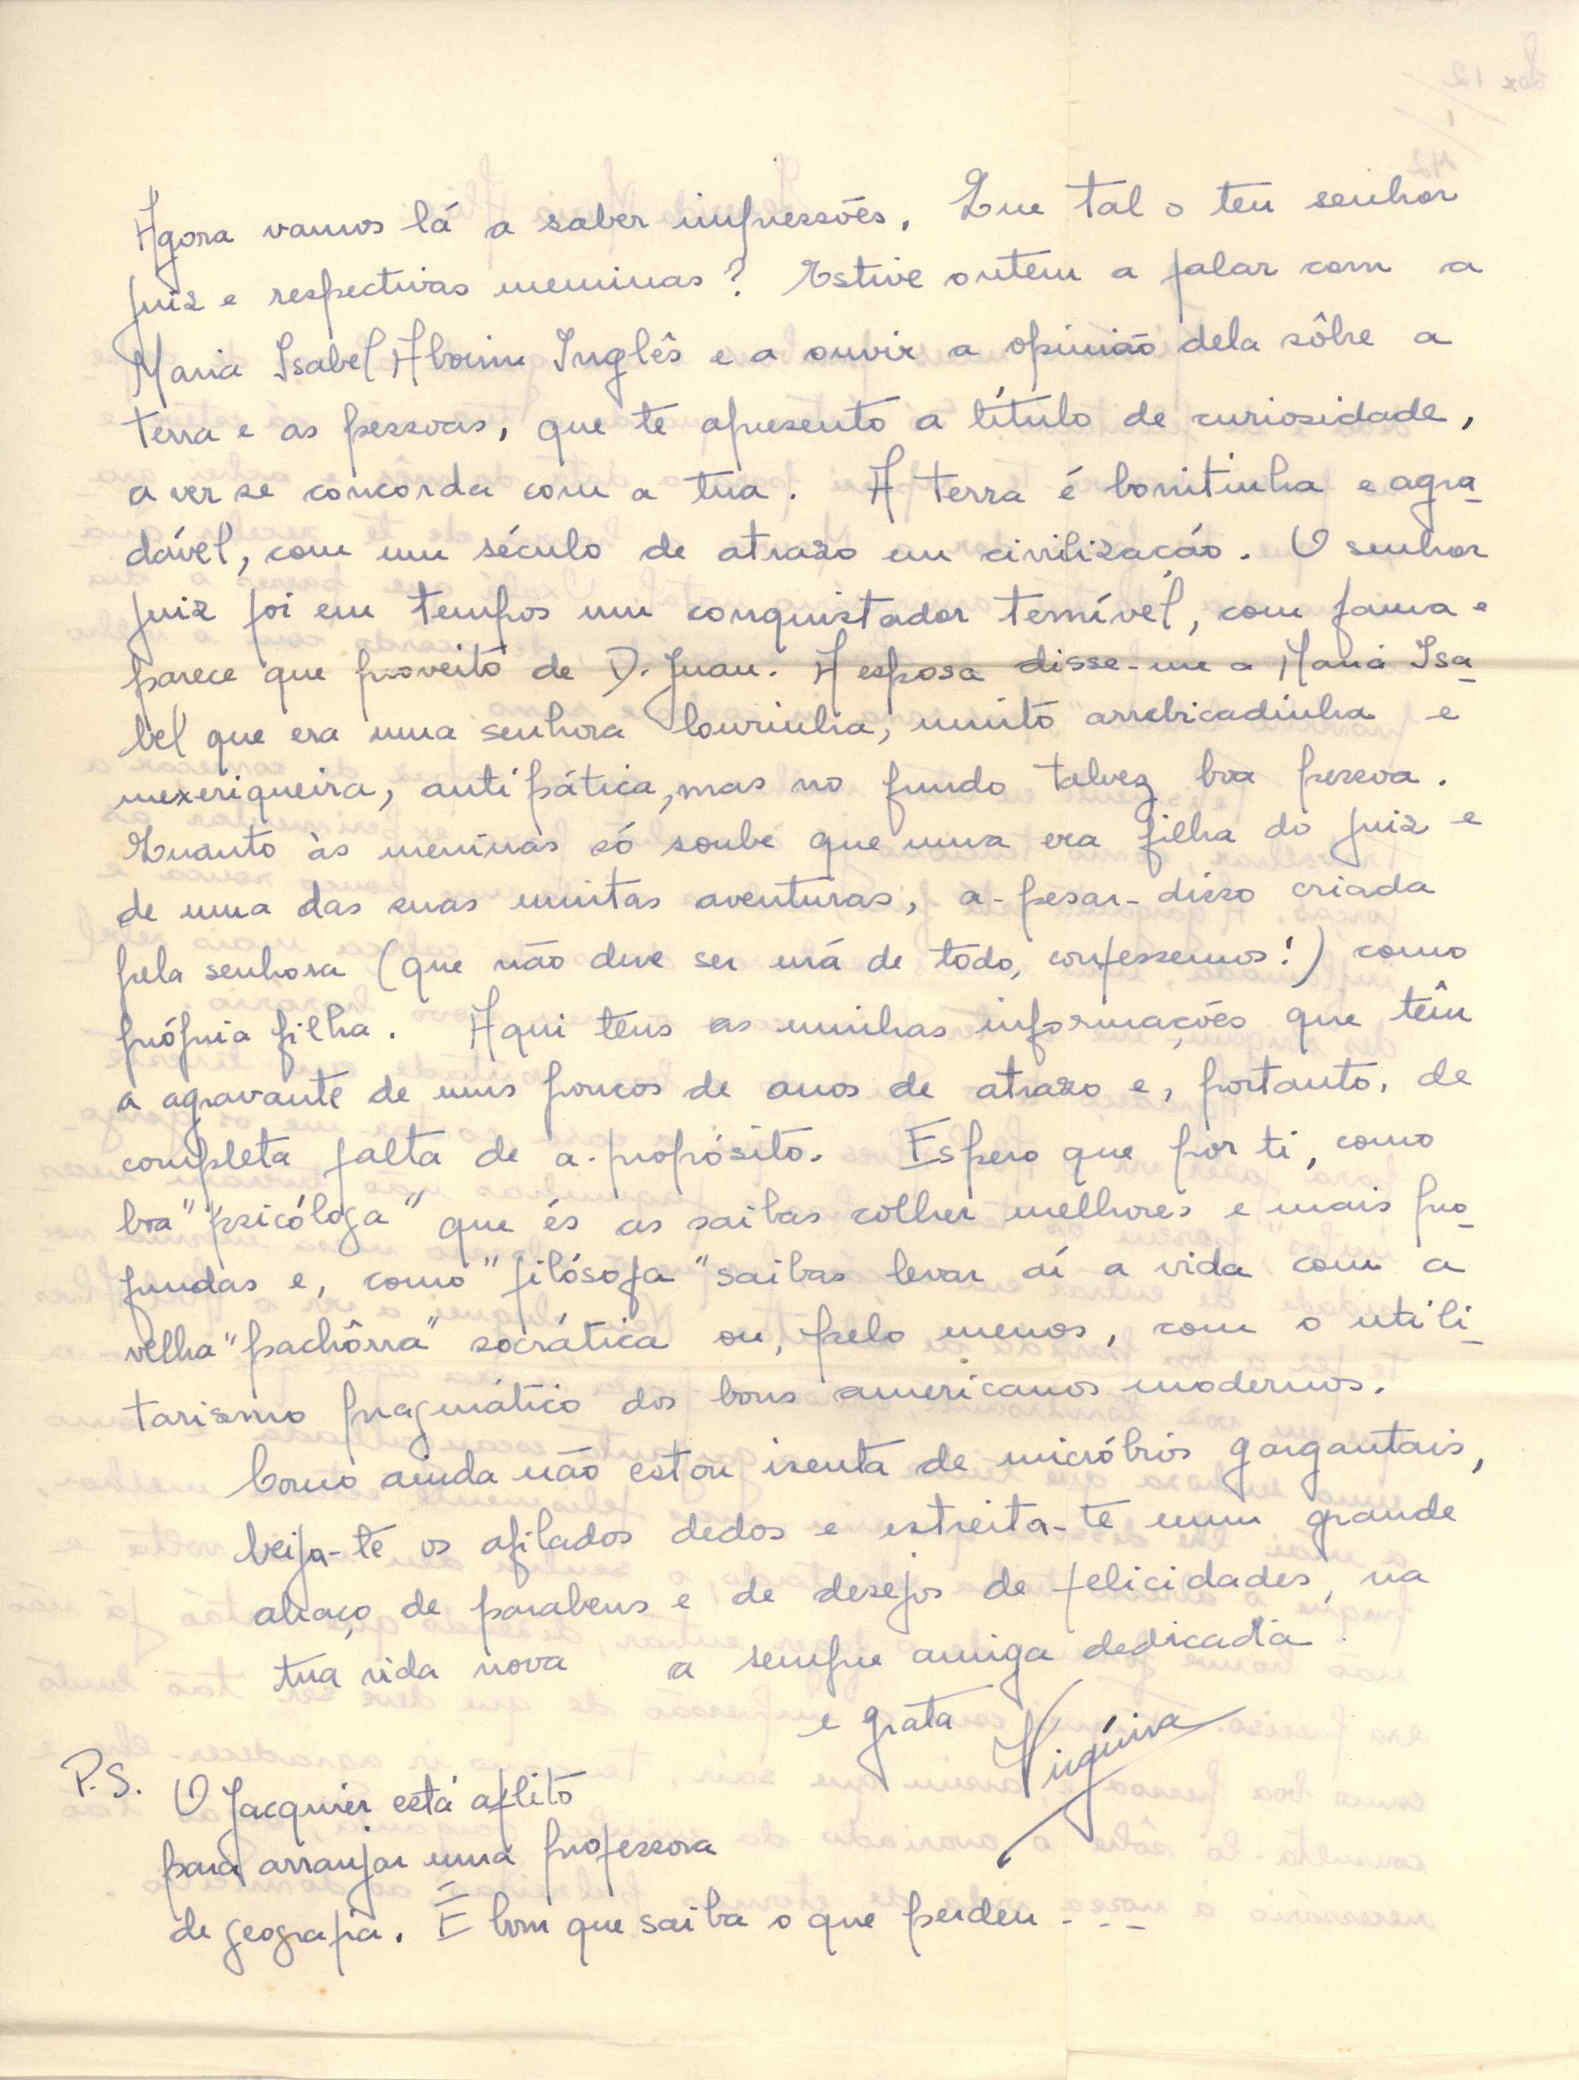 Agora vamos lá a saber impressões. Que tal o teu senhor
juiz e respectivas meninas? Estive ontem a falar com a
Maria Isabel Aboim Inglês e a ouvir a opinião dela sôbre a
terra e as pessoas, que te apresento a título de curiosidade,
a ver se concorda com a tua. A terra é bonitinha e agra-
dável, com um século de atrazo em civilização. O senhor
juiz foi em tempos um conquistador temível, com fama e
parece que proveito de D. Juan. A esposa disse-me a Maria Isa-
bel que era uma senhora lourinha, muito arrebicadinha e
mexeriqueira, antipática, mas no fundo talvez boa pessoa.
Quanto às meninas só soube que uma era filha do juiz e
de uma das suas muitas aventuras, a-pesar-disso criada
pela senhora (que não deve ser má de todo, confessemos!) como
própria filha. Aqui tens as minhas informações que têm
a agravante de uns poucos de anos de atrazo e, portanto, de
completa falta de a-propósito. Espero que por ti, como
boa "psicóloga" que és as saibas colher melhores e mais pro-
fundas e, como "filósofa" saibas levar aí a vida com a
velha "pachôrra" socrática ou, pelo menos, com o utili-
tarismo pragmático dos bons americanos modernos.
Como ainda não estou isenta de micróbios gargantais,
beija-te os afilados dedos e estreita-te num grande
abraço de parabens e de desejos de felicidades, na
tua vida nova a sempre amiga dedicada
e grata Virgínia
P.S. O Jacquier está aflito
para arranjar uma professora
de geografia. É bom que saiba o que perdeu - - -